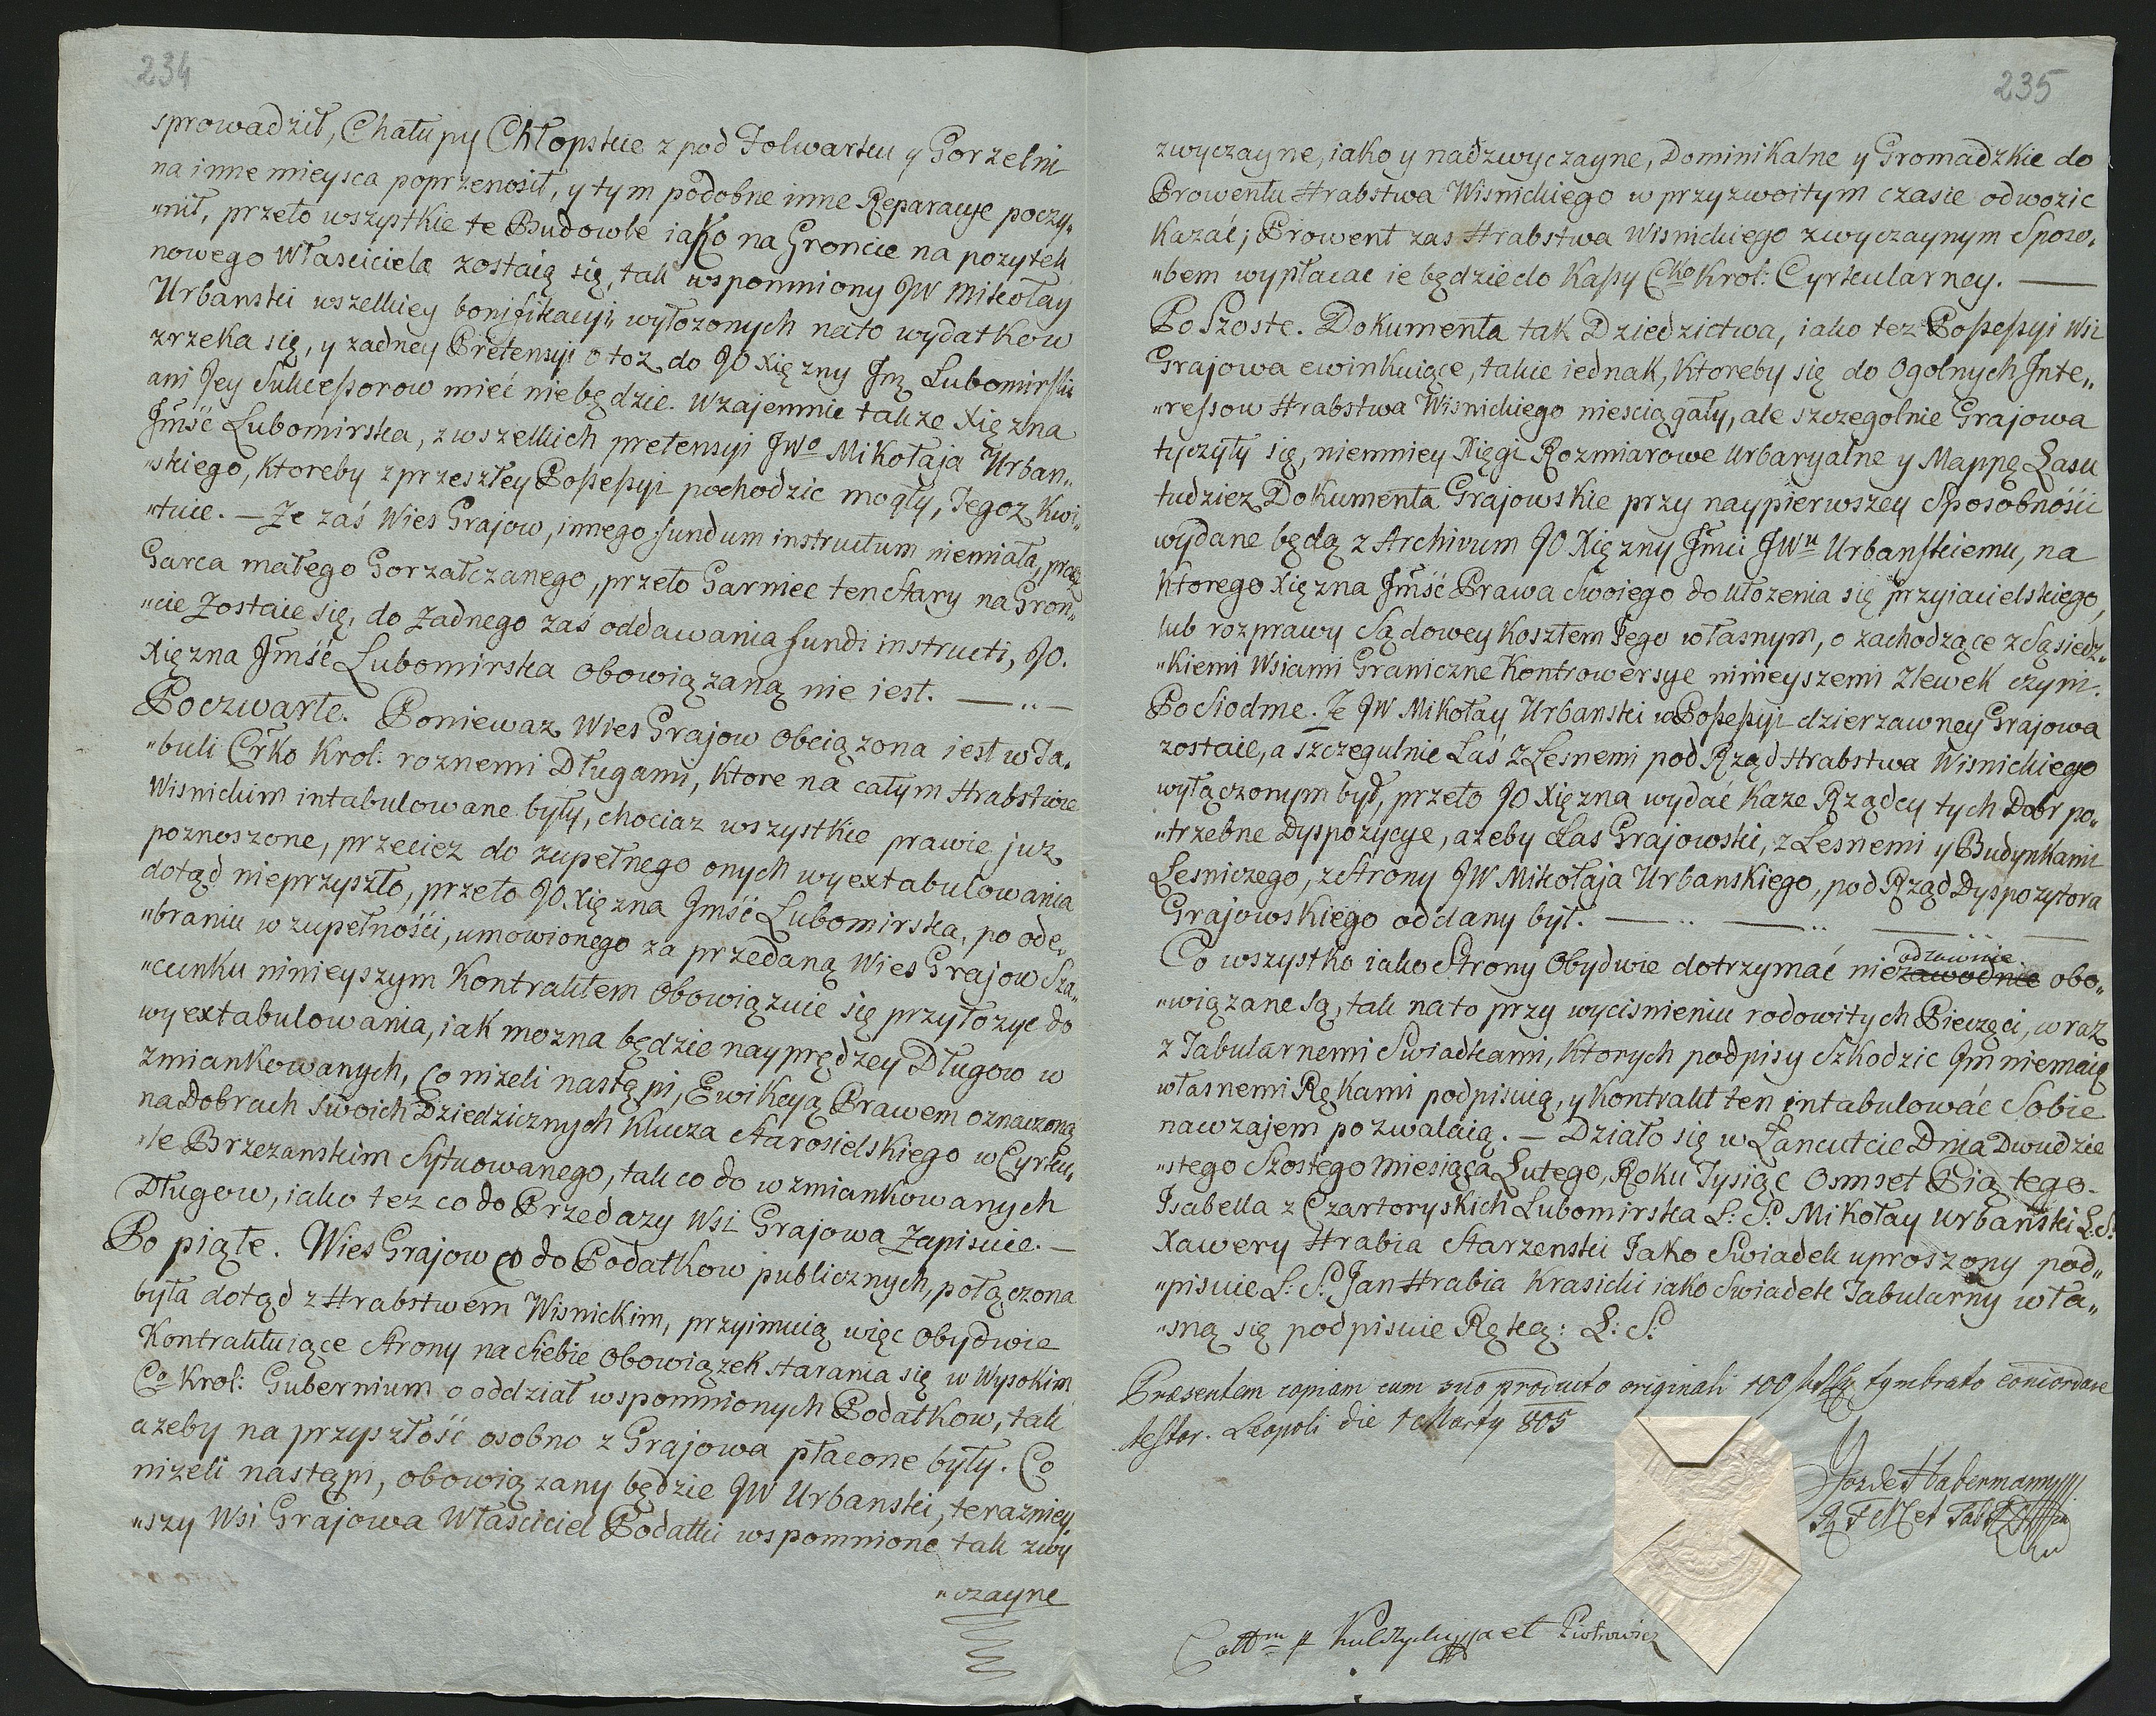 234
sprowadził, Chałupy Chłopskie z pod Folwarku y Gorzelni
na inne mieysca poprzenosił, y tym podobne inne Reparacye poczy„
„nił, przeto wszystkie te Budowle iako na Groncie na pozytek
nowego Własciciela zostaią się, tak wspomniony JW Mikołay
Urbanski wszelkiey bonifikacyi wyłozonych nato wydatkow
zrzeka się, y zadney Pretensyi o toz do JO Xięzny Jmę Lubomirskiey
ani Jey Sukcessorow mieć niebędzie. Wzajemnie takze Xięzna
Jmść Lubomirska, z wszelkich pretensyi JWo Mikołaja Urban„
„skiego, ktoreby z przeszłey Possessyi pochodzic mogły, Tegoz Kwi„
„tuie. — Ze zaś Wies Grajow, innego fundum instructum niemiała, procz
Garca małego Gorzałczanego, przeto Garniec ten Stary na Gron„
„cie Zostaie się, do Zadnego zaś oddawania fundi instructi, JO.
Xięzna Jmść Lubomirska obowiązaną nie iest. — „ —
Poczwarte. Poniewaz Wies Grajow obciązona iest w Ta„
„buli Crko Krol: roznemi Długami, ktore na całym Hrabstwie
Wisnickim intabulowane były, chociaz wszystkie prawie juz
poznoszone, przeciez do zupełnego onych wyextabulowania
dotąd nieprzyszło, przeto JO. Xięzna Jmść Lubomirska, po ode„
„braniu w zupełności, umowionego za przedaną Wies Grajow Sza„
„cunku ninieyszym Kontraktem obowiązuie się przyłozyc do
wyextabulowania, iak mozna będzie nayprędzey Długow w
zmiankowanych, Co nizeli nastąpi, Ewikcyą Prawem oznaczoną
na Dobrach swoich Dziedzicznych Klucza Starosielskiego w Cyrku„
„le Brzezanskim Sytuowanego, tak co do wzmiankowanych
Długow, iako tez co do Przedazy Wsi Grajowa Zapisuie. —
Po piąte. Wies Grajow co do Podatkow publicznych, połączona
była dotąd z Hrabstwem Wisnickim, przyimuią więc Obydwie
Kontraktuiące Strony na Siebie Obowiązek starania się w Wysokim
Co Krol: Gubernium o oddział wspomnionych Podatkow, tak
azeby na przyszłość osobno z Grajowa płacone były. Co
nizeli nastąpi, obowiązany będzie JW Urbanski, terazniey„
„szy Wsi Grajowa Własciciel Podatki wspomnione tak zwy
„czayne
235
zwyczayne, iako y nadzwyczayne, Dominikalne y Gromadzkie do
Prowentu Hrabstwa Wisnickiego w przyzwoitym czasie odwozic
Kazać; Prowent zas Hrabstwa Wisnickiego zwyczaynym Sposo„
„bem wypłacac ie będzie do Kassy Cko Krol: Cyrkularney. —
Po Szoste. Dokumenta tak Dziedzictwa, iako tez Possessyi Wsi
Grajowa ewinkuiące, takie iednak, Ktoreby się do Ogolnych Jnte„
„ressow Hrabstwa Wisnickiego niesciągały, ale szczegolnie Grajowa
tyczyły się, niemniey Xięgi Rozmiarowe Urbaryalne y Mappę Lasu
tudziez Dokumenta Grajowskie przy naypierwszey Sposobności
wydane będą z Archivum JO Xięzny Jmci JWu Urbanskiemu, na
Ktorego Xięzna Jmść Prawa Swoiego do Ułozenia się przyiacielskiego,
lub rozprawy Sądowey Kosztem Jego własnym, o zachodzące z Sąsiedz„
„kiemi Wsiami Graniczne Kontrowersye ninieyszemi Zlewek czyni.
Po Siodme. Ze JW Mikołay Urbanski w Possessyi dzierzawney Grajowa
zostaie, a szczegulnie Las z Lesnemi pod Rząd Hrabstwa Wisnickiego
wyłączonym był, przeto JO Xięzna wydać Kaze Rządcy tych Dobr po„
„trzebne Dyspozycye, azeby Las Grajowski, z Lesnemi y Budynkami
Lesniczego, z Strony JW Mikołaja Urbanskiego, pod Rząd Dyspozytora
Grajowskiego oddany był. — „ — „ — —
Co wszystko iako Strony Obydwie dotrzymać niezawodnie obo„
odzownie
„wiązane są, tak na to przy wycisnieniu rodowitych Pieczęci, wraz
z Tabularnemi Swiadkami, Ktorych podpisy Szkodzic Jm niemaią
własnemi Rękami podpisuią, y Kontrakt ten intabulować Sobie
nawzajem pozwalaią. — Działo się w Łancutcie Dnia Dwudzie
„stego Szostego Miesiąca Lutego, Roku Tysiąc Osmset Piątego.
Isabella z Czartoryskich Lubomirska L: S. Mikołay Urbański L: S.
Xawery Hrabia Starzenski Jako Swiadek uproszony pod„
„pisuie L: S. Jan Hrabia Krasicki iako Swiadek Tabularny wła„
„sną się podpisuie Ręką: L: S.
Præsentem copiam cum suo producto originali 100 tymbrato concordare
testor. Leopoli die 1 Marty 805
Habermann
Coll m p et Piotrowicz